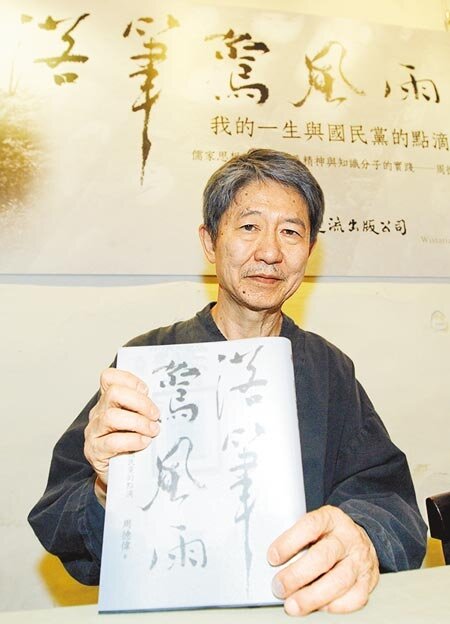 落筆驚風雨
我的一生與國民黨的點滴
儒家思想精神與知識分子的實踐——周德
流出版公司
Wistaria
落筆
驚風雨
黨的點滴
周德偉 著